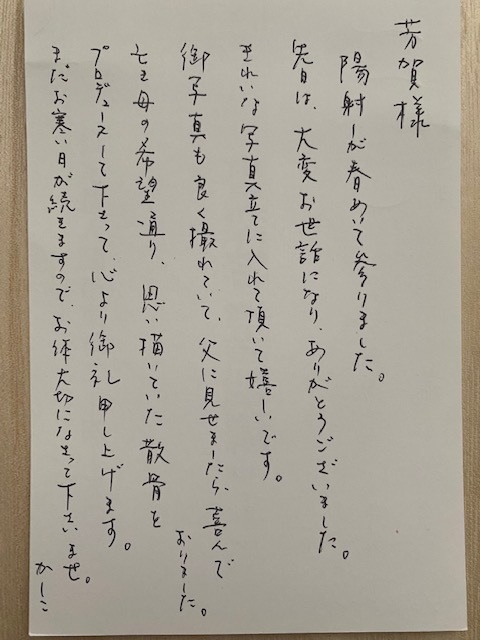 芳賀様
陽射しが春めいて参りました。
先日は、大変お世話になり、ありがとうございました。
きれいな写真立てに入れて頂いて嬉しいです。
御写真も良く撮れていて、父に見せましたら、喜んで
おりました。
亡き母の希望通り、思い描いていた散骨を
プロデュースして下さって、心より御礼申し上げます。
まだお寒い日が続きますので、お体大切になさって下さいませ。
かしこ